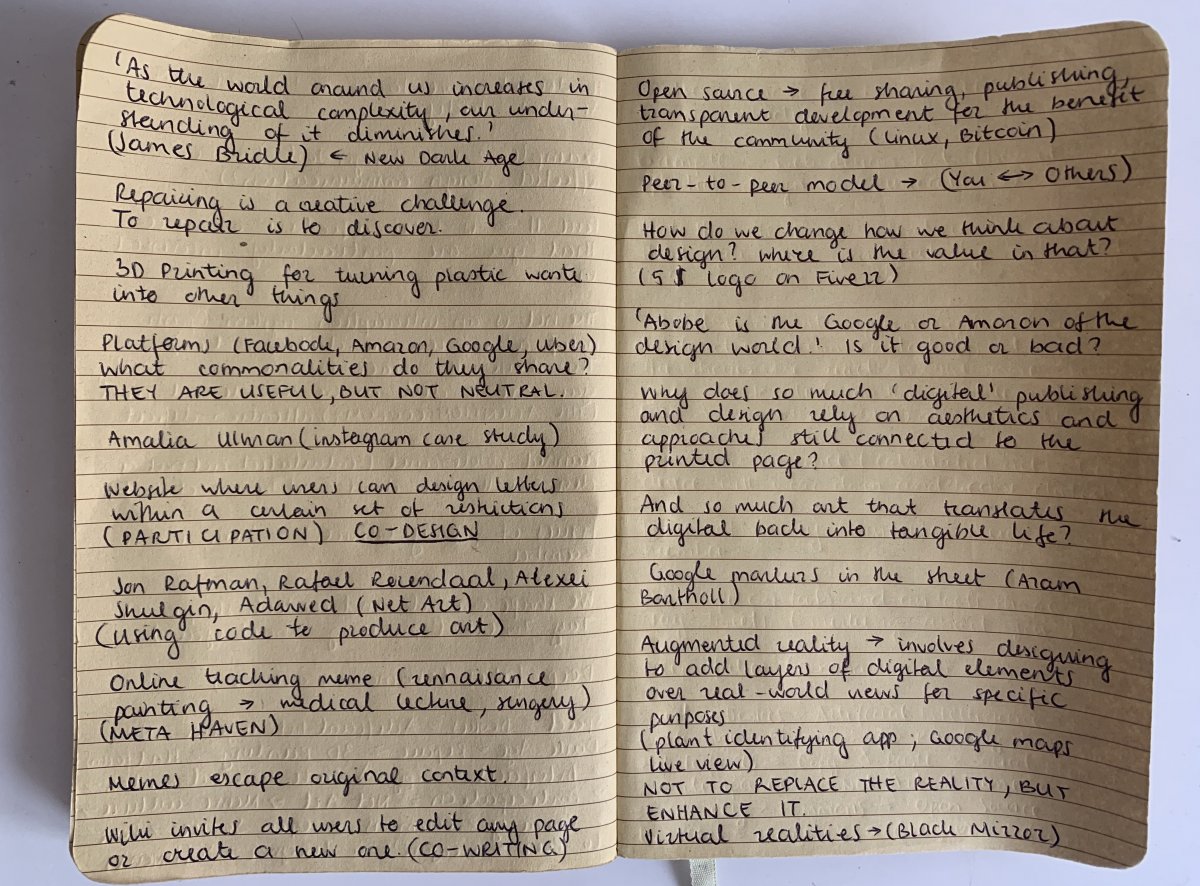 'As the world around us increases in
technological complexity, our under-
standing of it diminishes.'
(James Bridle) ← New Dark Age
Repairing is a creative challenge.
To repair is to discover.
3D Printing for turning plastic waste
into other things
Platforms (Facebook, Amazon, Google, Uber)
What commonalities do they share?
THEY ARE USEFUL, BUT NOT NEUTRAL.
Amalia Ulman (instagram case study)
Website where users can design letters
within a certain set of restrictions
(PARTICIPATION) CO-DESIGN
Jon Rafman, Rafael Rozendaal, Alexei
Shulgin, Adaweed (Net Art)
(using code to produce art)
Online teaching meme (rennaisance
painting → medical lecture, surgery)
(META HAVEN)
Memes escape original context.
Wiki invites all users to edit any page
or create a new one. (CO-WRITING)
Open source → free sharing, publishing,
transparent development for the benefit
of the community (Linux, Bitcoin)
Peer-to-peer model → (You ↔ Others)
How do we change how we think about
design? Where is the value in that?
(5 $ logo on Fiverr)
'Abobe is the Google or Amazon of the
design world.' Is it good or bad?
Why does so much 'digital' publishing
and design rely on aesthetics and
approaches still connected to the
printed page?
And so much art that translates the
digital back into tangible life?
Google markers in the street (Aram
Bartholl)
Augmented reality → involves designing
to add layers of digital elements
over real-world views for specific
purposes
(plant identifying app; Google maps
live view)
NOT TO REPLACE THE REALITY, BUT
ENHANCE IT.
Virtual realities → (Black Mirror)